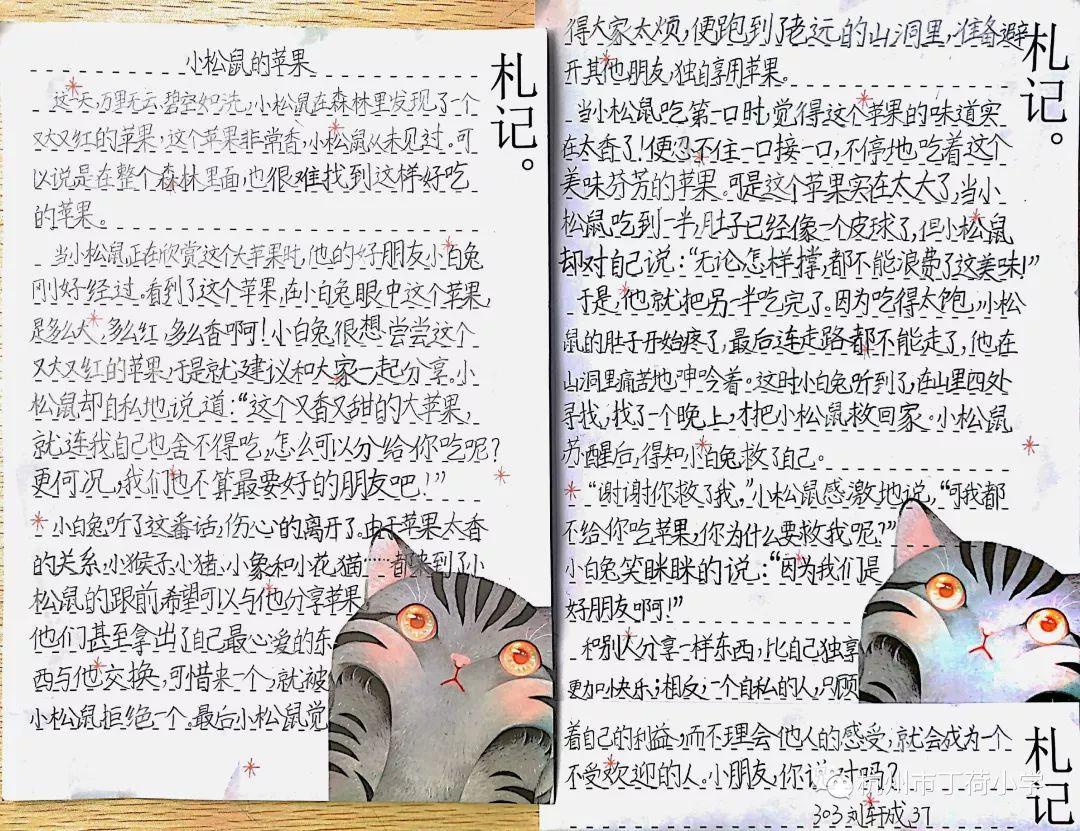 小松鼠的苹果
札记。
这一天,万里无云,碧空如洗,小松鼠在森林里发现了一个
又大又红的苹果,这个苹果非常香,小松鼠从未见过。可
以说是在整个森林里面,也很难找到这样好吃
的苹果。
当小松鼠正在欣赏这个大苹果时,他的好朋友小白兔
刚好经过。看到了这个苹果,在小白兔眼中这个苹果,
是多么大,多么红,多么香啊!小白兔很想尝尝这个
又大又红的苹果,于是就建议和大家一起分享。小
松鼠却自私地说道:“这个又香又甜的大苹果,
就连我自己也舍不得吃,怎么可以分给你吃呢?
更何况,我们也不算最要好的朋友吧!”
小白兔听了这番话,伤心的离开了。由于苹果太香
的关系,小猴子、小猪、小象和小花猫……都来到了小
松鼠的跟前,希望可以与他分享苹果。
他们甚至拿出了自己最心爱的东
西与他交换,可惜来一个,就被
小松鼠拒绝一个。最后小松鼠觉
得大家太烦,便跑到了老远的山洞里,准备避
开其他朋友,独自享用苹果。
札记。
当小松鼠吃第一口时,觉得这个苹果的味道实
在太香了!便忍不住一口接一口,不停地吃着这个
美味芬芳的苹果。可是这个苹果实在太大了,当小
松鼠吃到一半,肚子已经像一个皮球了,但小松鼠
却对自己说:“无论怎样撑,都不能浪费了这美味!”
于是,他就把另一半吃完了。因为吃得太饱,小松
鼠的肚子开始疼了,最后连走路都不能走了,他在
山洞里痛苦地呻吟着。这时小白兔听到了,在山里四处
寻找,找了一个晚上,才把小松鼠救回家。小松鼠
苏醒后,得知小白兔救了自己。
“谢谢你救了我,”小松鼠感激地说,“可我都
不给你吃苹果,你为什么要救我呢?”
小白兔笑眯眯的说:“因为我们是
好朋友啊!”
和别人分享一样东西,比自己独享
更加快乐;相反,一个自私的人,只顾
着自己的利益,而不理会他人的感受,就会成为一个
不受欢迎的人。小朋友,你说对吗?
札记
杭州市丁荷小学
303刘轩成37